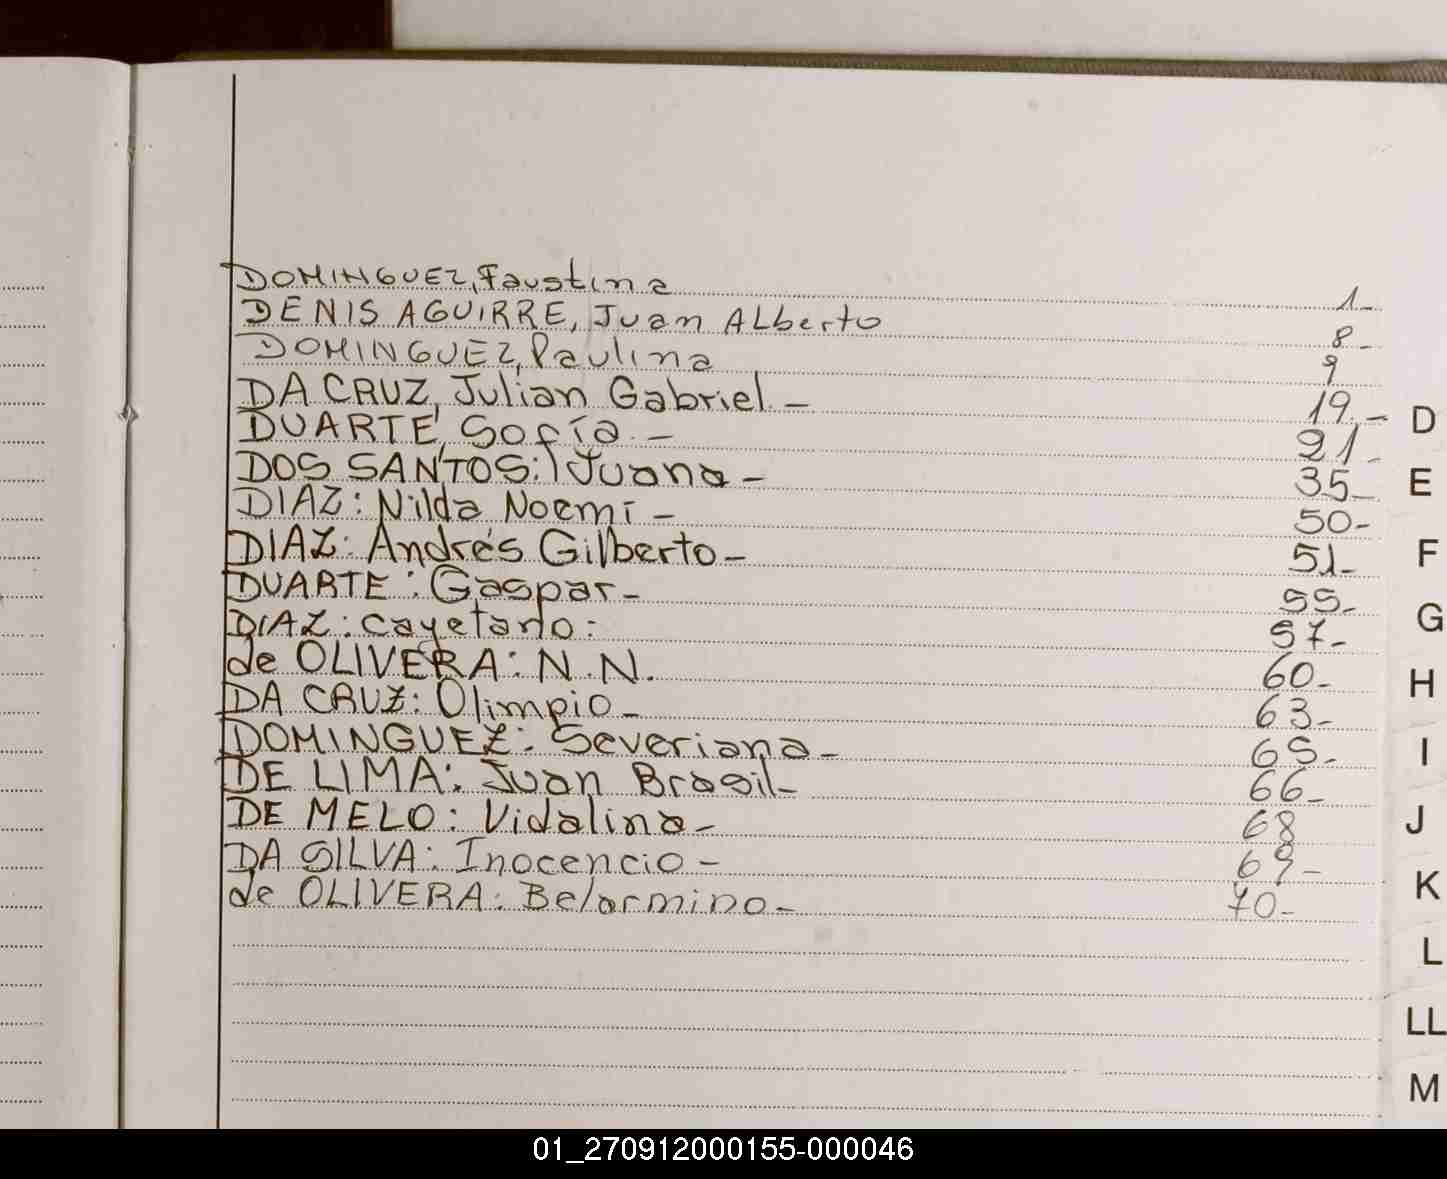 DOMINGUEZ, Faustina 1-
DENIS AGUIRRE, Juan ALberto 8-
DOMINGUEZ, Paulina 9
DA CRUZ, Julian Gabriel.- 19.-
DUARTE, Sofía.- 21-
DOS SANTOS: Juana- 35-
DIAZ: Nilda Noemí- 50-
DIAZ: Andrés Gilberto- 51-
DUARTE: Gaspar- 55-
DIAZ: Cayetano: 57-
de OLIVERA: N.N. 60-
DA CRUZ: Olimpio- 63-
DOMINGUEZ: Severiana- 65-
DE LIMA: Juan Brasil- 66-
DE MELO: Vidalina- 68
DA SILVA: Inocencio- 69-
de OLIVERA: Belarmino- 70-
D
E
F
G
H
I
J
K
L
LL
M
01_270912000155-000046